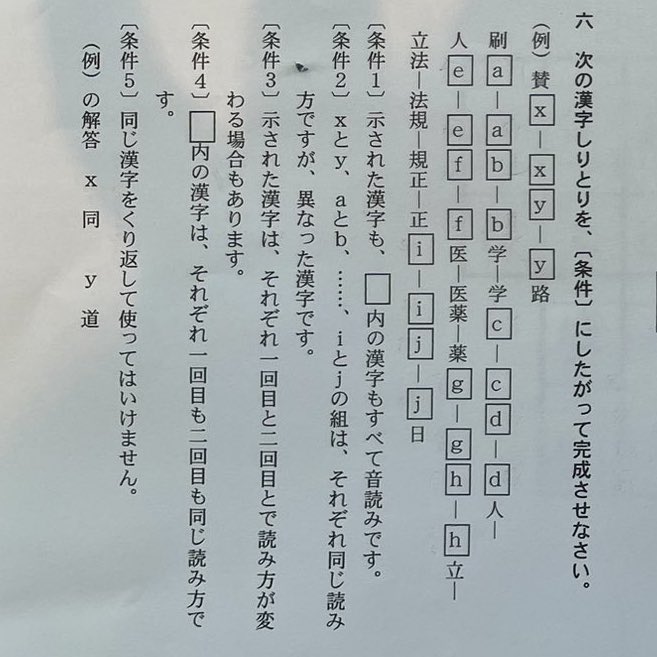 六 次の漢字しりとりを、〔条件〕にしたがって完成させなさい。
(例) 賛x―xy―y路
刷a―ab―b学―学c―cd―d人―
人e―ef―f医―医薬―薬g―gh―h立―
立法―法規―規正―正i―ij―j日
〔条件1〕示された漢字も、□内の漢字もすべて音読みです。
〔条件2〕xとy、aとb、……、iとjの組は、それぞれ同じ読み
方ですが、異なった漢字です。
〔条件3〕示された漢字は、それぞれ一回目と二回目とで読み方が変
わる場合もあります。
〔条件4〕□内の漢字は、それぞれ一回目も二回目も同じ読み方で
す。
〔条件5〕同じ漢字をくり返して使ってはいけません。
(例)の解答 x 同 y 道